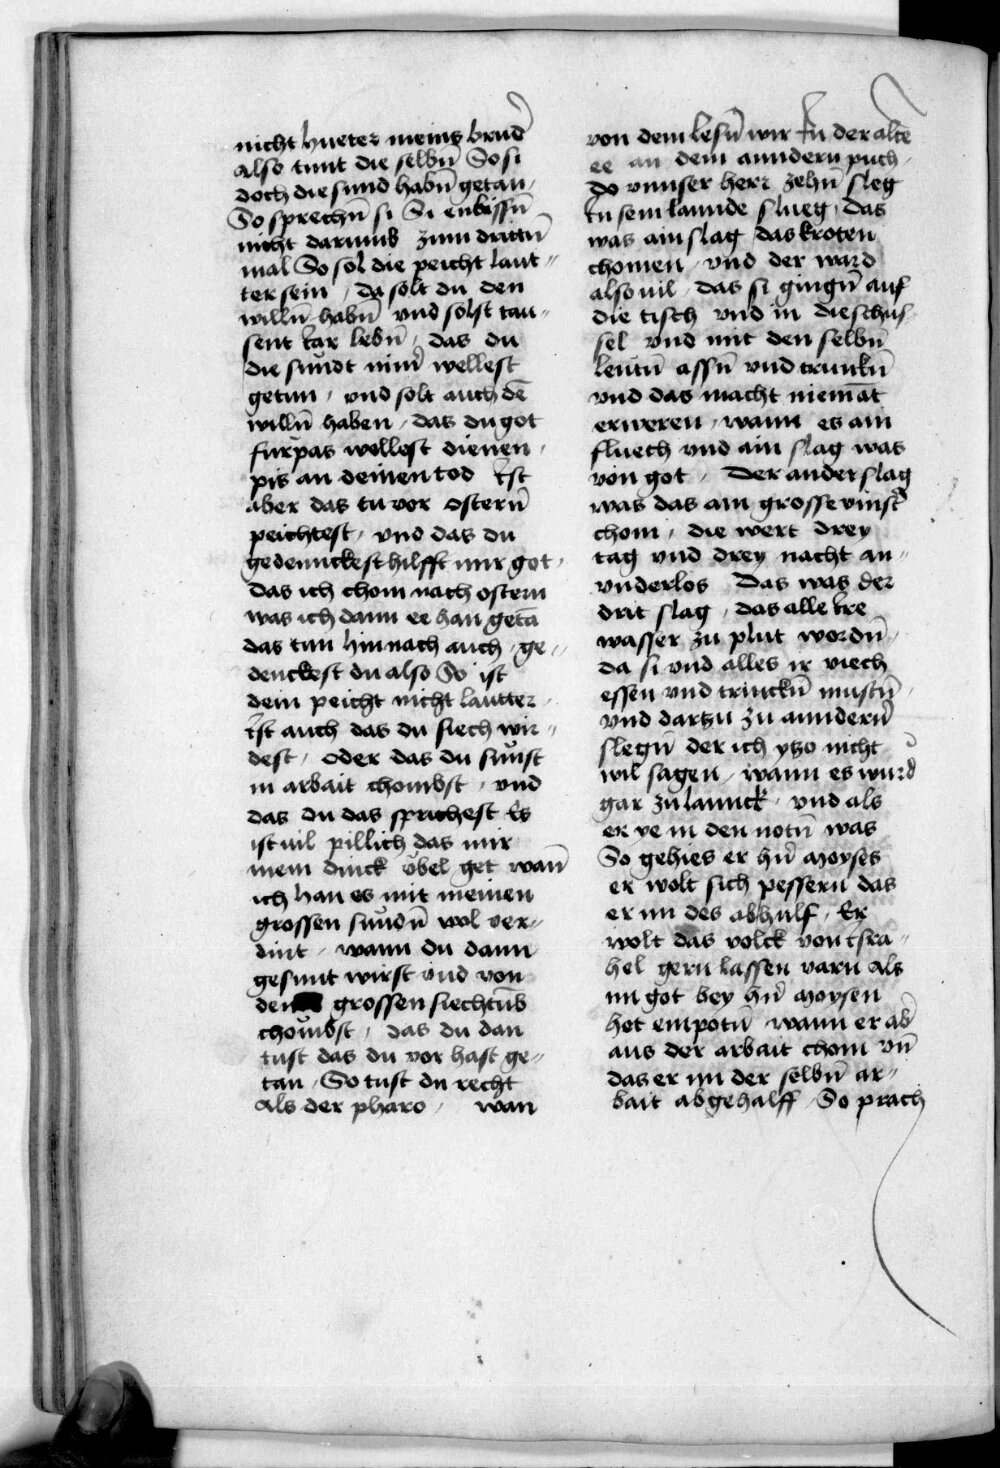 nicht hueter meins brud̄
also tunt die selbn̄ So si
doch die sund habn̄ getan
So sprechn̄ si Si enbissn̄
nicht darumb zum drittn̄
mal So sol die peicht laut-
ter sein / da solt du den
willn̄ habn̄ und solst tau-
sent Iar lebn̄ / das du
die sundt nim̄ wellest
getun / vnd solt auch dē
willn̄ haben / das du got
furpas wellest dienen /
pis an deinen tod Ist
aber das tu vor ostern̄
peichtest / vnd das du
gedennckest hilfft mir got /
das ich chom nach ostern
was ich dann ee han getā
das tun hinnach auch / ge-
denckest du also So ist
dein peicht nicht lautter /
Ist auch das du siech wir-
dest / oder das du sunst
in arbait chombst / vnd
das du das sprichest Es
ist vil pillich das mir
mein dinck ubel get wan̄
ich han es mit meinen
grossen sundn̄ wol ver-
dint / wann du dann
gesunt wirst vnd von
den grossen siechtūb
chombst / das du dan
tust das du vor hast ge-
tan / So tust du recht
als der pharo / wan
von dem lesn̄ wir In der altē
ee an dem anndern puch /
do vnnser herr zehn̄ sleg
In sein lannde slueg / das
was ain slag das kroten
chomen / vnd der ward
also vil / das si gingn̄ auf
die tisch vnd in die schus-
sel vnd mit den selbn̄
leutn̄ assn̄ vnd trunkn̄
vnd das macht niemāt
erweren / wann es ain
fluech vnd ain slag was
von got / Der ander slag
was das ain grosse vinst̄
chom / die wert drey
tag vnd drey nacht an-
vnderlos Das was der
drit slag / das alle Ire
wasser zu plut wordn̄ /
da si vnd alles ir viech
essen vnd trinckn̄ mustn̄ /
vnd dartzu zu anndern̄
slegn̄ der ich ytzo nicht
wil sagen / wann es wurd
gar zu lannck / vnd als
er ye in den notn̄ was
So gehies er hn̄ Moyses
er wolt sich pessern das
er im des abhulf / Er
wolt das volck von Isra-
hel gern lassen varn als
im got bey hn̄ Moysen
het enpotn̄ wann er ab̄
aus der arbait chom vn̄
das er im der selbn̄ ar-
bait abgehalff / So prach